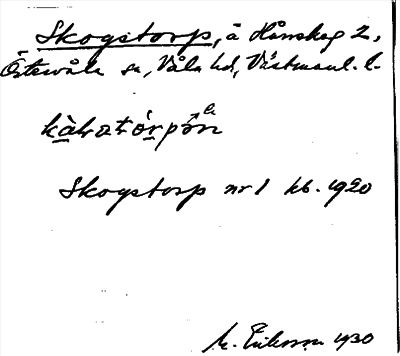 Skogstorp, å Hånskog 2,
Östervåla sn, Våla hd, Västmanl. l.
Skogstorp nr 1 kb. 1920
M. Eriksson 1930